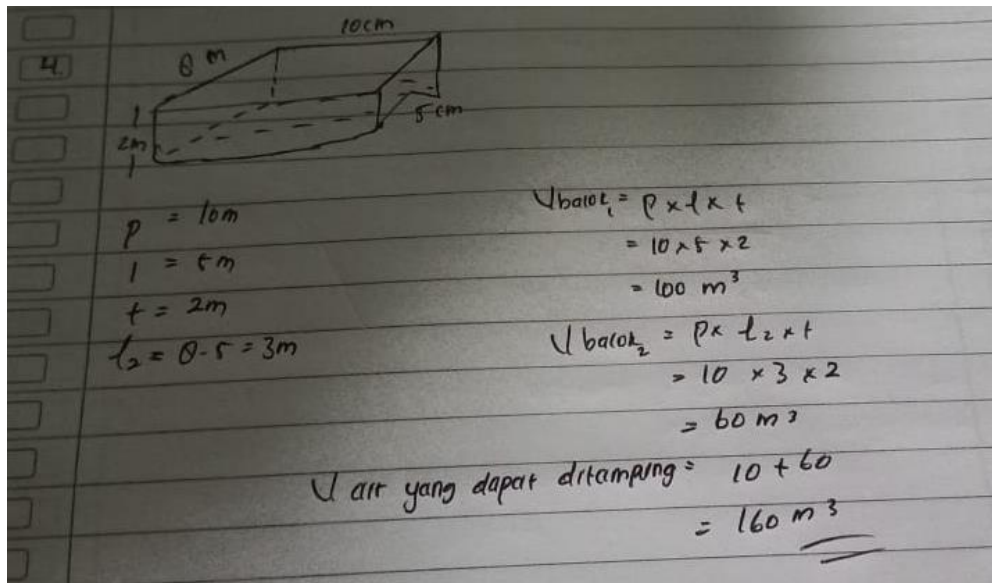 4.
10cm
8 m
2m
5 cm
p = 10m
l = 5m
t = 2m
l₂ = 8-5 = 3m
V balok₁ = p x l x t
= 10 x 5 x 2
= 100 m³
V balok₂ = p x l₂ x t
= 10 x 3 x 2
= 60 m³
V air yang dapat ditampung = 10 + 60
= 160 m³